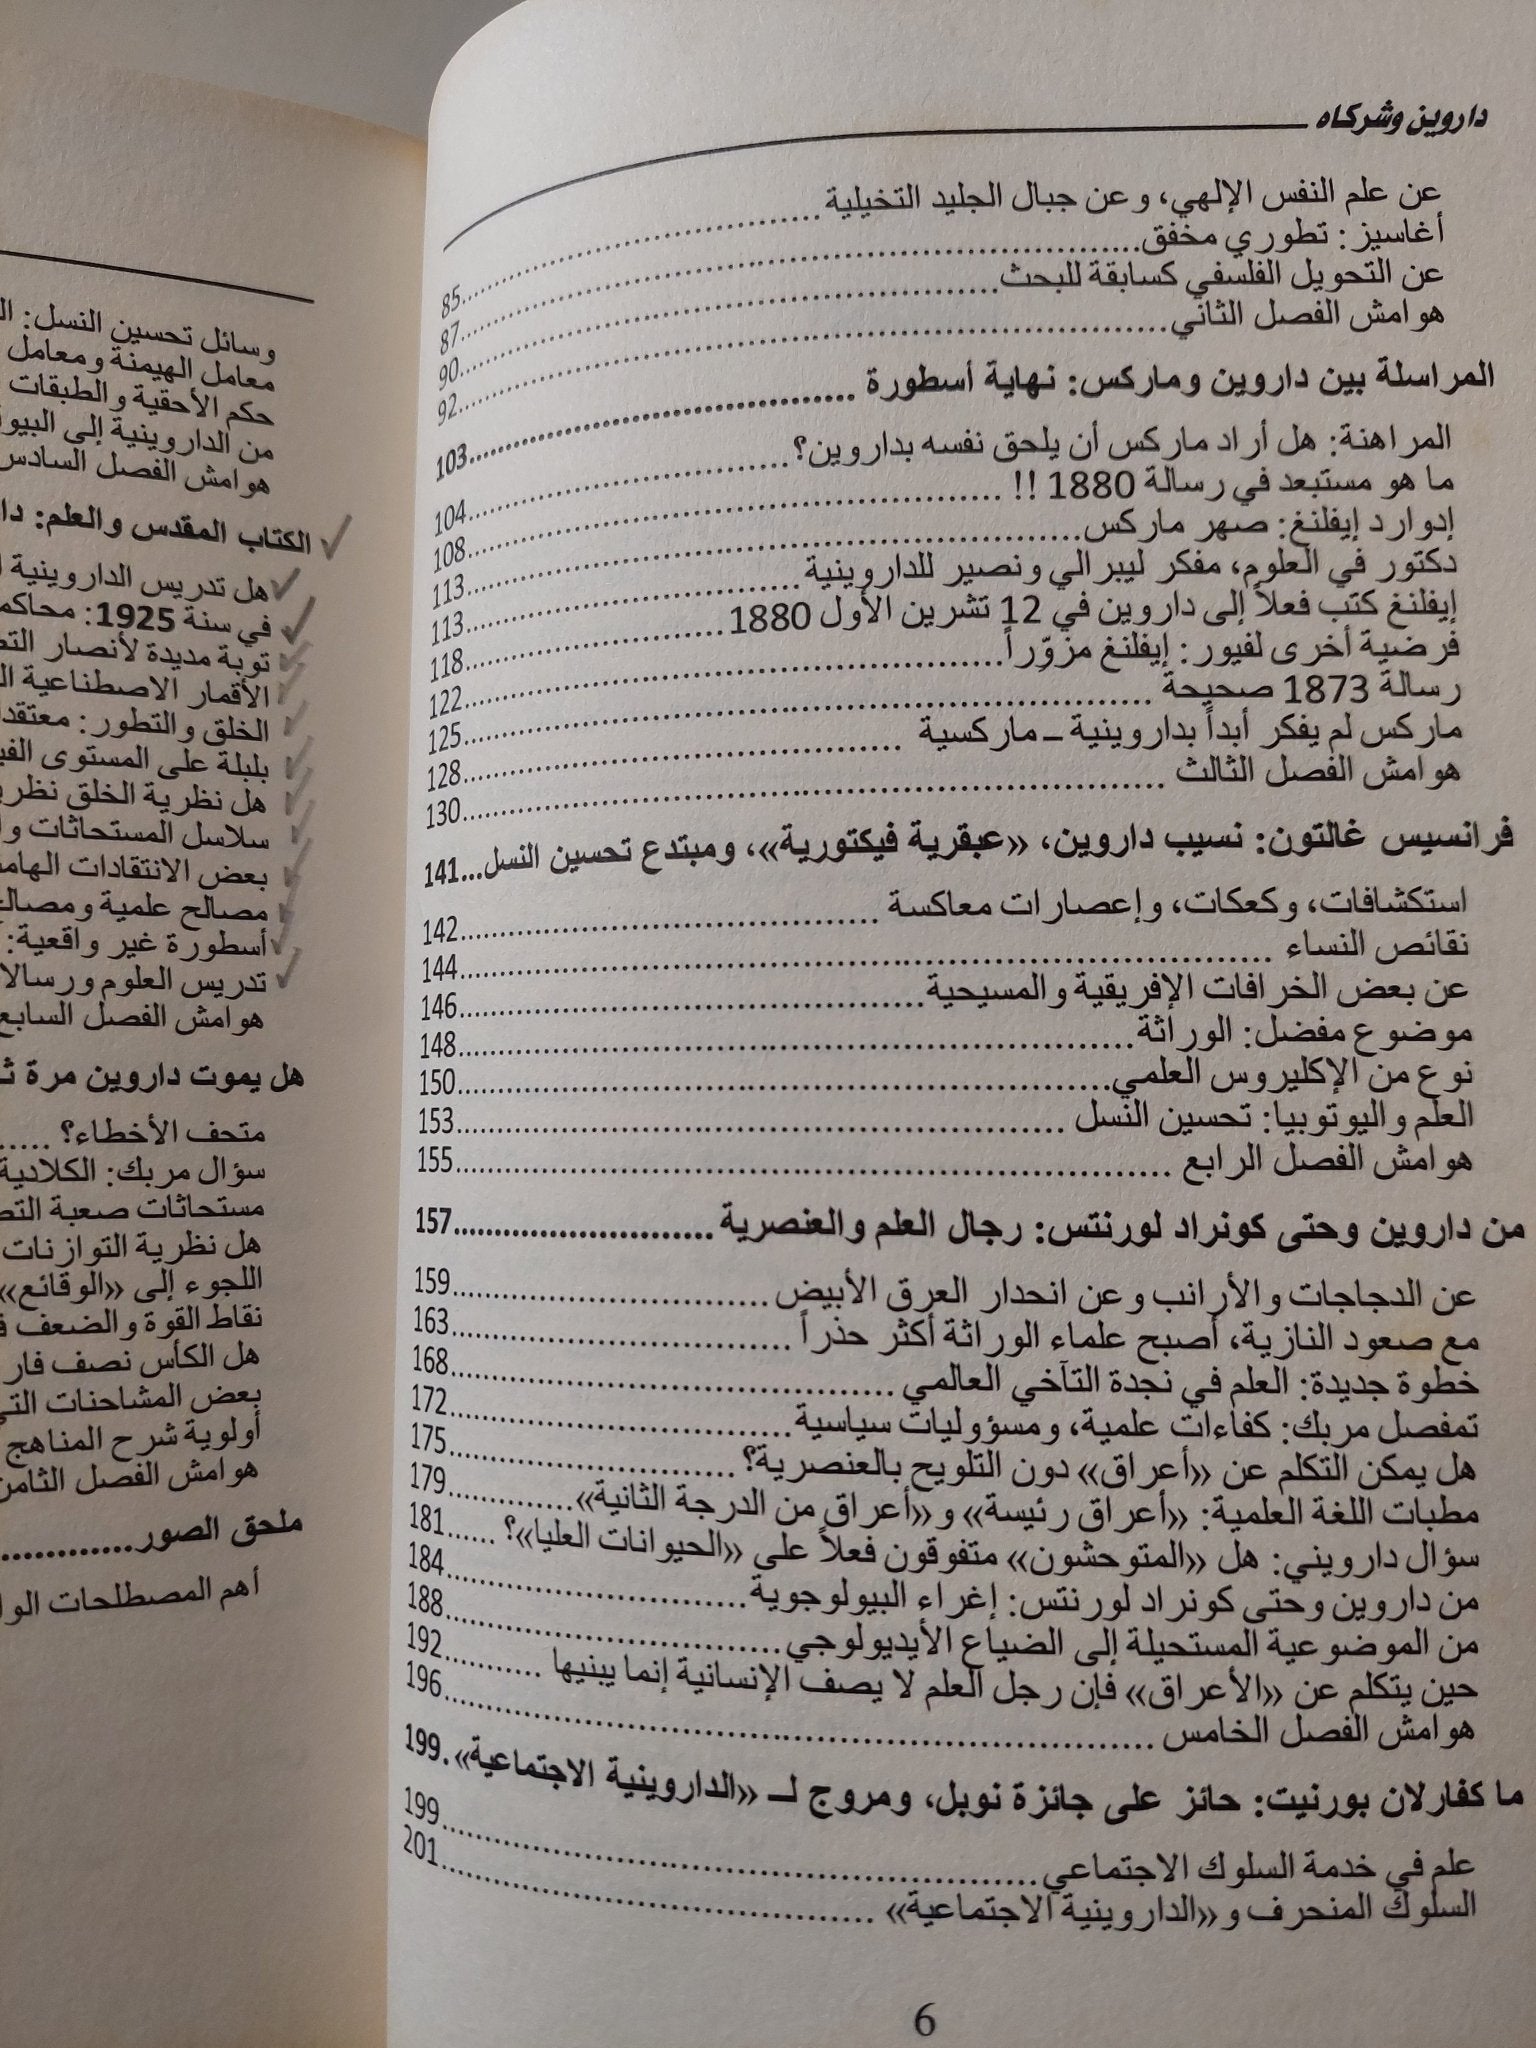 داروين وشركاه
عن علم النفس الإلهي، وعن جبال الجليد التخيلية ........ 85
أغاسيز: تطوري مخفق ........ 87
عن التحويل الفلسفي كسابقة للبحث ........ 90
هوامش الفصل الثاني ........ 92
المراسلة بين داروين وماركس: نهاية أسطورة ........ 103
المراهنة: هل أراد ماركس أن يلحق نفسه بداروين؟ ........ 104
ما هو مستبعد في رسالة 1880 !! ........ 108
إدوارد إيفلنغ: صهر ماركس ........ 113
دكتور في العلوم، مفكر ليبرالي ونصير للداروينية ........ 113
إيفلنغ كتب فعلاً إلى داروين في 12 تشرين الأول 1880 ........ 118
فرضية أخرى لفيور: إيفلنغ مزوّراً ........ 122
رسالة 1873 صحيحة ........ 125
ماركس لم يفكر أبداً بداروينية ــ ماركسية ........ 128
هوامش الفصل الثالث ........ 130
فرانسيس غالتون: نسيب داروين، «عبقرية فيكتورية»، ومبتدع تحسين النسل...141
استكشافات، وكعكات، وإعصارات معاكسة ........ 142
نقائص النساء ........ 144
عن بعض الخرافات الإفريقية والمسيحية ........ 146
موضوع مفضل: الوراثة ........ 148
نوع من الإكليروس العلمي ........ 150
العلم واليوتوبيا: تحسين النسل ........ 153
هوامش الفصل الرابع ........ 155
من داروين وحتى كونراد لورنتس: رجال العلم والعنصرية ........ 157
عن الدجاجات والأرانب وعن انحدار العرق الأبيض ........ 159
مع صعود النازية، أصبح علماء الوراثة أكثر حذراً ........ 163
خطوة جديدة: العلم في نجدة التآخي العالمي ........ 168
تمفصل مربك: كفاءات علمية، ومسؤوليات سياسية ........ 172
هل يمكن التكلم عن «أعراق» دون التلويح بالعنصرية؟ ........ 175
مطبات اللغة العلمية: «أعراق رئيسة» و«أعراق من الدرجة الثانية» ........ 179
سؤال دارويني: هل «المتوحشون» متفوقون فعلاً على «الحيوانات العليا»؟ ...... 181
من داروين وحتى كونراد لورنتس: إغراء البيولوجوية ........ 184
من الموضوعية المستحيلة إلى الضياع الأيديولوجي ........ 188
حين يتكلم عن «الأعراق» فإن رجل العلم لا يصف الإنسانية إنما يبنيها ........ 192
هوامش الفصل الخامس ........ 196
ما كفارلان بورنيت: حائز على جائزة نوبل، ومروج لــ «الداروينية الاجتماعية».199
علم في خدمة السلوك الاجتماعي ........ 199
السلوك المنحرف و«الداروينية الاجتماعية» ........ 201
6
وسائل تحسين النسل:
معامل الهيمنة ومعامل
حكم الأحقية والطبقات
من الداروينية إلى
هوامش الفصل السادس
الكتاب المقدس والعلم:
هل تدريس الداروينية
في سنة 1925:
توبة مديدة لأنصار
الأقمار الاصطناعية
الخلق والتطور:
بلبلة على المستوى
هل نظرية الخلق
سلاسل المستحاثات
بعض الانتقادات
مصالح علمية
أسطورة غير واقعية:
تدريس العلوم
هوامش الفصل السابع
هل يموت داروين مرة
متحف الأخطاء؟ .....
سؤال مربك: الكلادية
مستحاثات صعبة
هل نظرية التوازنات
اللجوء إلى «الوقائع»
نقاط القوة والضعف
هل الكأس نصف
بعض المشاحنات
أولوية شرح المناهج
هوامش الفصل الثامن
ملحق الصور............
أهم المصطلحات